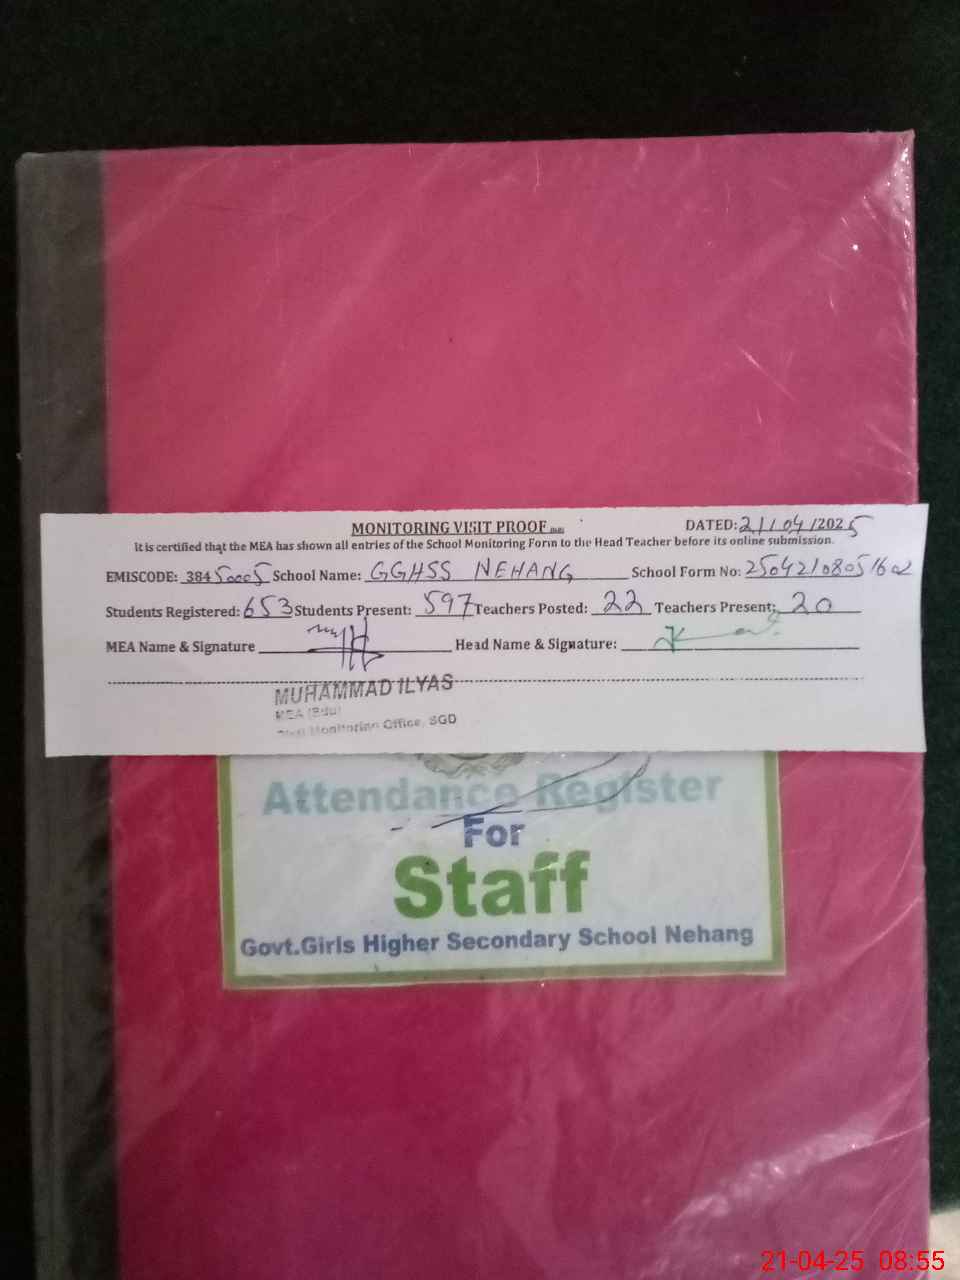 MONITORING VISIT PROOF DATED: 21/04/2025
It is certified that the MEA has shown all entries of the School Monitoring Form to the Head Teacher before its online submission.
EMISCODE: 38450005 School Name: GGHSS NEHANG School Form No: 25042108051602
Students Registered: 653 Students Present: 597 Teachers Posted: 22 Teachers Present: 20
MEA Name & Signature Head Name & Signature:
MUHAMMAD ILYAS
MEA (Edu)
Monitoring Office, SGD
Attendance Register
For
Staff
Govt.Girls Higher Secondary School Nehang
21-04-25 08:55